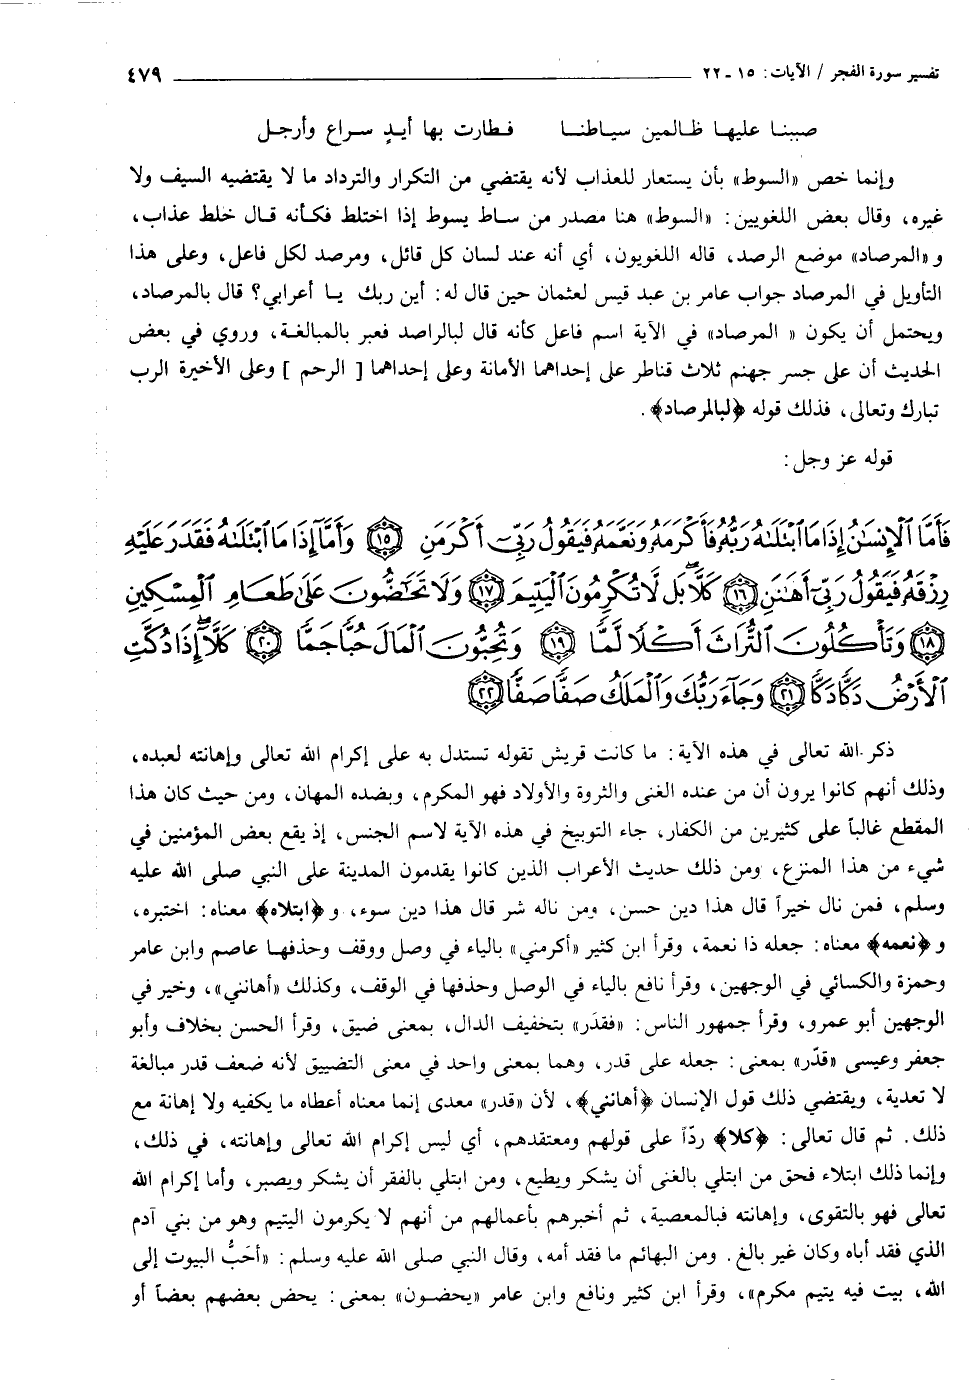 تفسير سورة الفجر / الآيات: ١٥ - ٢٢ ٤٧٩
صببنا عليها ظالمين سياطنا فطارت بها أيدٍ سراع وأرجل
وإنما خص «السوط» بأن يستعار للعذاب لأنه يقتضي من التكرار والترداد ما لا يقتضيه السيف ولا
غيره، وقال بعض اللغويين: «السوط» هنا مصدر من ساط يسوط إذا اختلط فكأنه قال خلط عذاب،
و«المرصاد» موضع الرصد، قاله اللغويون، أي أنه عند لسان كل قائل، ومرصد لكل فاعل، وعلى هذا
التأويل في المرصاد جواب عامر بن عبد قيس لعثمان حين قال له: أين ربك يا أعرابي؟ قال بالمرصاد،
ويحتمل أن يكون « المرصاد» في الآية اسم فاعل كأنه قال لبالراصد فعبر بالمبالغة، وروي في بعض
الحديث أن على جسر جهنم ثلاث قناطر على إحداهما الأمانة وعلى إحداهما [ الرحم ] وعلى الأخيرة الرب
تبارك وتعالى، فذلك قوله ﴿لبالمرصاد﴾.
قوله عز وجل:
فَأَمَّا ٱلْإِنسَٰنُ إِذَا مَا ٱبْتَلَىٰهُ رَبُّهُۥ فَأَكْرَمَهُۥ وَنَعَّمَهُۥ فَيَقُولُ رَبِّىٓ أَكْرَمَنِ ١٥ وَأَمَّآ إِذَا مَا ٱبْتَلَىٰهُ فَقَدَرَ عَلَيْهِ
رِزْقَهُۥ فَيَقُولُ رَبِّىٓ أَهَٰنَنِ ١٦ كَلَّا ۖ بَل لَّا تُكْرِمُونَ ٱلْيَتِيمَ ١٧ وَلَا تَحَٰٓضُّونَ عَلَىٰ طَعَامِ ٱلْمِسْكِينِ
١٨ وَتَأْكُلُونَ ٱلتُّرَاثَ أَكْلًا لَّمًّا ١٩ وَتُحِبُّونَ ٱلْمَالَ حُبًّا جَمًّا ٢٠ كَلَّآ ۖ إِذَا دُكَّتِ
ٱلْأَرْضُ دَكًّا دَكًّا ٢١ وَجَآءَ رَبُّكَ وَٱلْمَلَكُ صَفًّا صَفًّا ٢٢
ذكر الله تعالى في هذه الآية: ما كانت قريش تقوله تستدل به على إكرام الله تعالى وإهانته لعبده،
وذلك أنهم كانوا يرون أن من عنده الغنى والثروة والأولاد فهو المكرم، وبضده المهان، ومن حيث كان هذا
المقطع غالباً على كثيرين من الكفار، جاء التوبيخ في هذه الآية لاسم الجنس، إذ يقع بعض المؤمنين في
شيء من هذا المنزع، ومن ذلك حديث الأعراب الذين كانوا يقدمون المدينة على النبي صلى الله عليه
وسلم، فمن نال خيراً قال هذا دين حسن، ومن ناله شر قال هذا دين سوء، و﴿ابتلاه﴾ معناه: اختبره،
و﴿نعمه﴾ معناه: جعله ذا نعمة، وقرأ ابن كثير «أكرمني» بالياء في وصل ووقف وحذفها عاصم وابن عامر
وحمزة والكسائي في الوجهين، وقرأ نافع بالياء في الوصل وحذفها في الوقف، وكذلك «أهانني»، وخير في
الوجهين أبو عمرو، وقرأ جمهور الناس: «فقدَر» بتخفيف الدال، بمعنى ضيق، وقرأ الحسن بخلاف وأبو
جعفر وعيسى «قدّر» بمعنى: جعله على قدر، وهما بمعنى واحد في معنى التضييق لأنه ضعف قدر مبالغة
لا تعدية، ويقتضي ذلك قول الإنسان ﴿أهانني﴾، لأن «قدر» معدى إنما معناه أعطاه ما يكفيه ولا إهانة مع
ذلك. ثم قال تعالى: ﴿كلا﴾ ردّاً على قولهم ومعتقدهم، أي ليس إكرام الله تعالى وإهانته، في ذلك،
وإنما ذلك ابتلاء فحق من ابتلي بالغنى أن يشكر ويطيع، ومن ابتلي بالفقر أن يشكر ويصبر، وأما إكرام الله
تعالى فهو بالتقوى، وإهانته فبالمعصية، ثم أخبرهم بأعمالهم من أنهم لا يكرمون اليتيم وهو من بني آدم
الذي فقد أباه وكان غير بالغ. ومن البهائم ما فقد أمه، وقال النبي صلى الله عليه وسلم: «أحَبُّ البيوت إلى
الله، بيت فيه يتيم مكرم»، وقرأ ابن كثير ونافع وابن عامر «يحضون» بمعنى: يحض بعضهم بعضاً أو